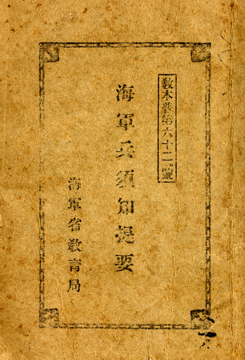 教本兼第六十二號
海軍兵須知提要
海軍省教育局